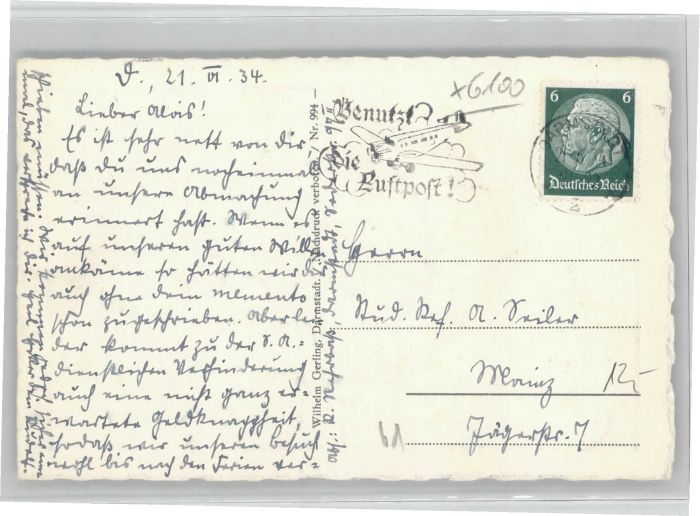 D., 21. VI. 34.
Lieber Alois!
Es ist sehr nett von dir
daß du uns nocheinmal
an unsere Abmachung
erinnert hast. Wenn es
auf unseren guten Willen
ankäme so hätten wir dir
auch ohne dein memento
schon zugeschrieben. Aber lei
der kommt zu der S.A.-
dienstlichen Verhinderung
auch eine nicht ganz er-
wartete Geldknappheit,
sodaß wir unseren Besuch
wohl bis nach den Ferien ver-
schieben müssen.
Wilhelm Gerling, Darmstadt. / Nachdruck verboten. / Nr. 994
Benutzt
die
Luftpost!
x6100
6 6
Deutsches Reich
Herrn
Stud. Ref. A. Seiler
Mainz
12,-
Jägerstr. 7